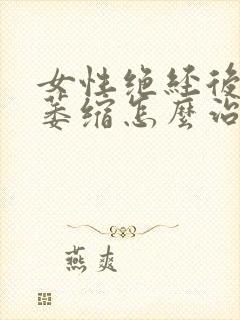 女性绝经後
萎缩怎麽治
燕爽